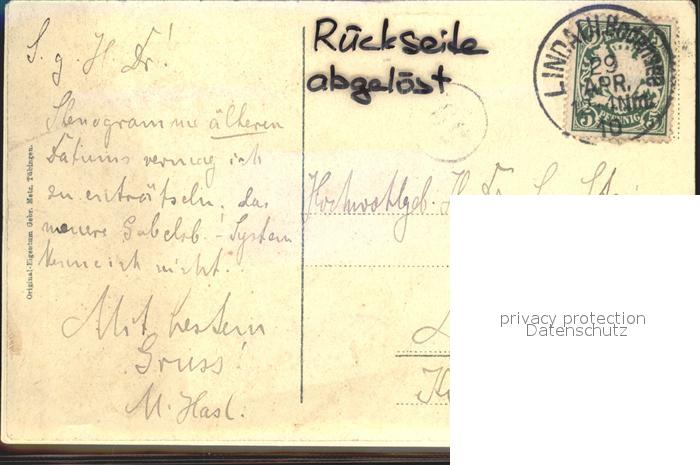 S. g. H. Dr.!
Stenogramme älteren
Datums vermag ich
zu enträtseln, das
neuere Gabelsb.-System
kenne ich nicht.
Mit bestem
Gruss!
M. Hasl.
Original-Eigentum Gebr. Metz, Tübingen.
Rückseite
abgelöst
LINDAU (Bodensee)
29
APR.
4Nm
10
5 PFENNIG 5
Hochwohlgeb. H. Dr.
privacy protection
Datenschutz